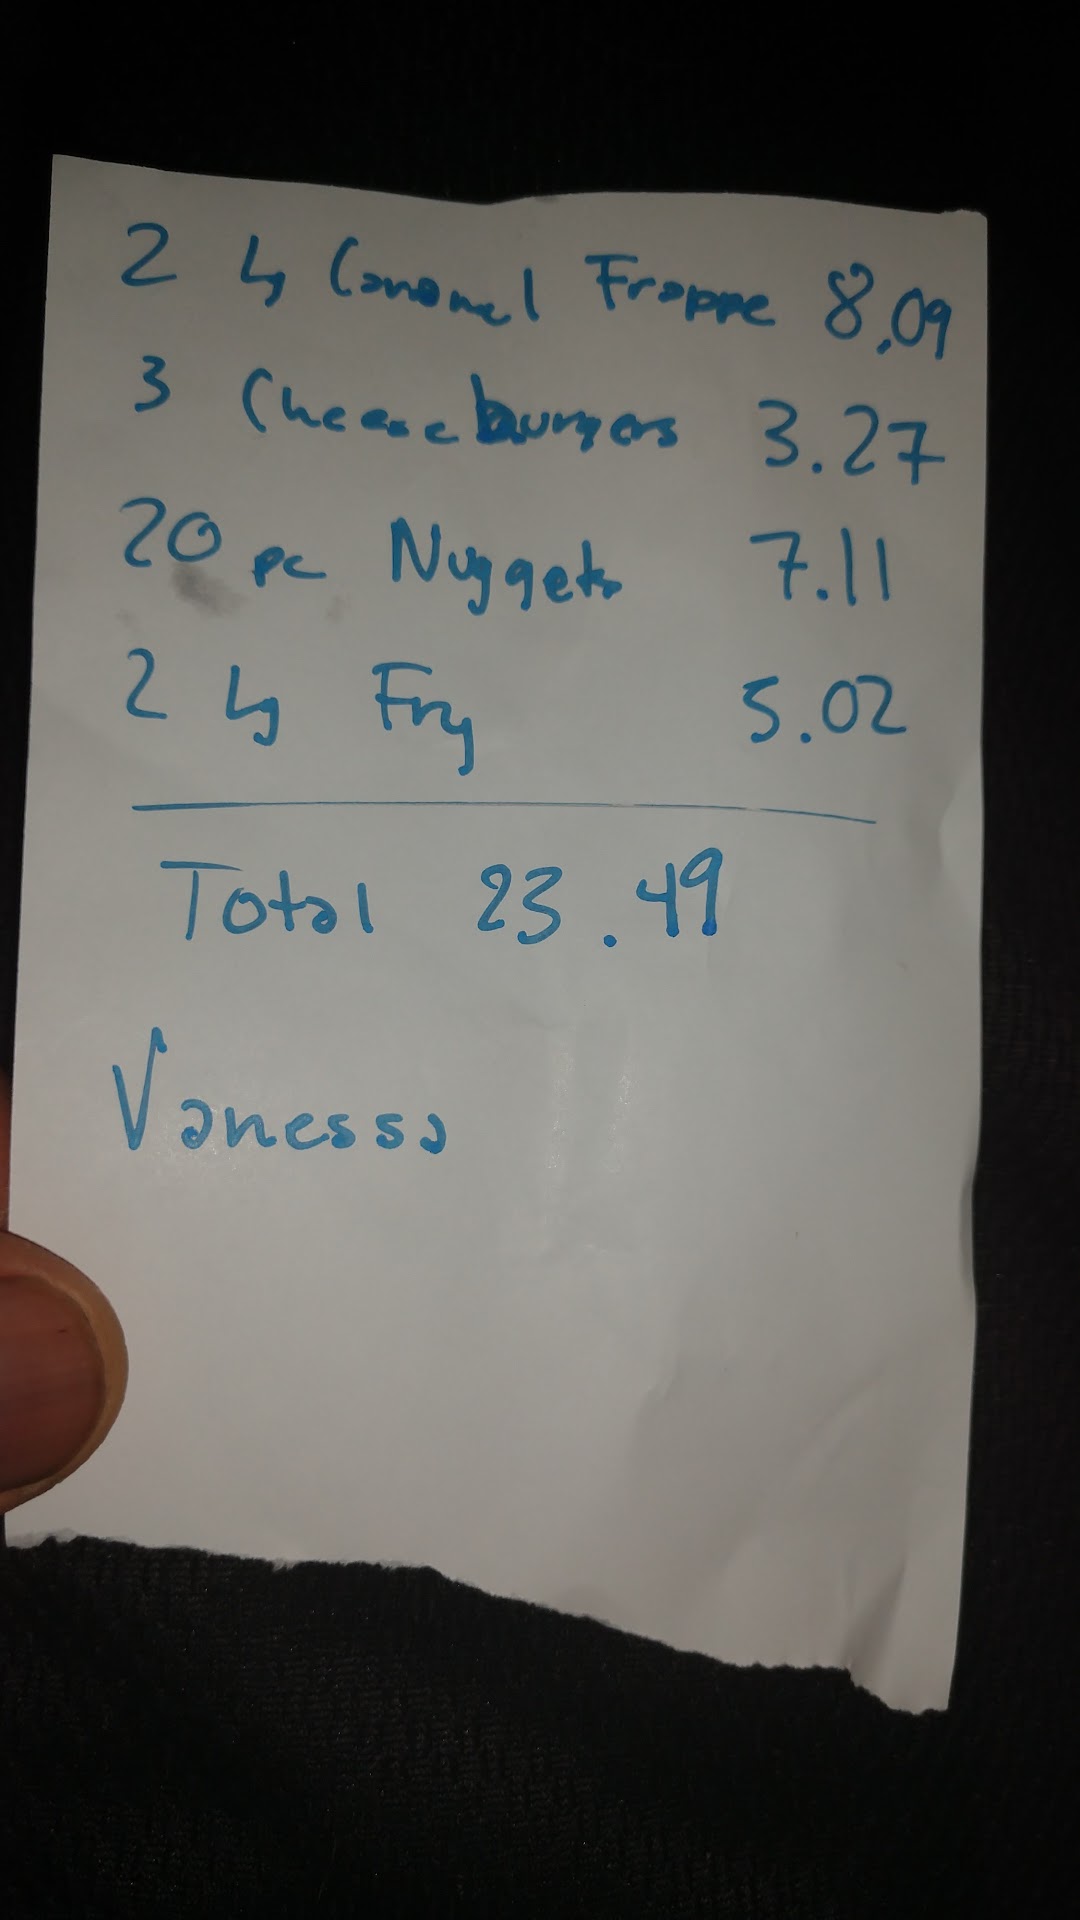 2 Lg Caramel Frappe 8.09
3 Cheeseburgers 3.27
20 pc Nuggets 7.11
2 Lg Fry 5.02
Total 23.49
Vanessa